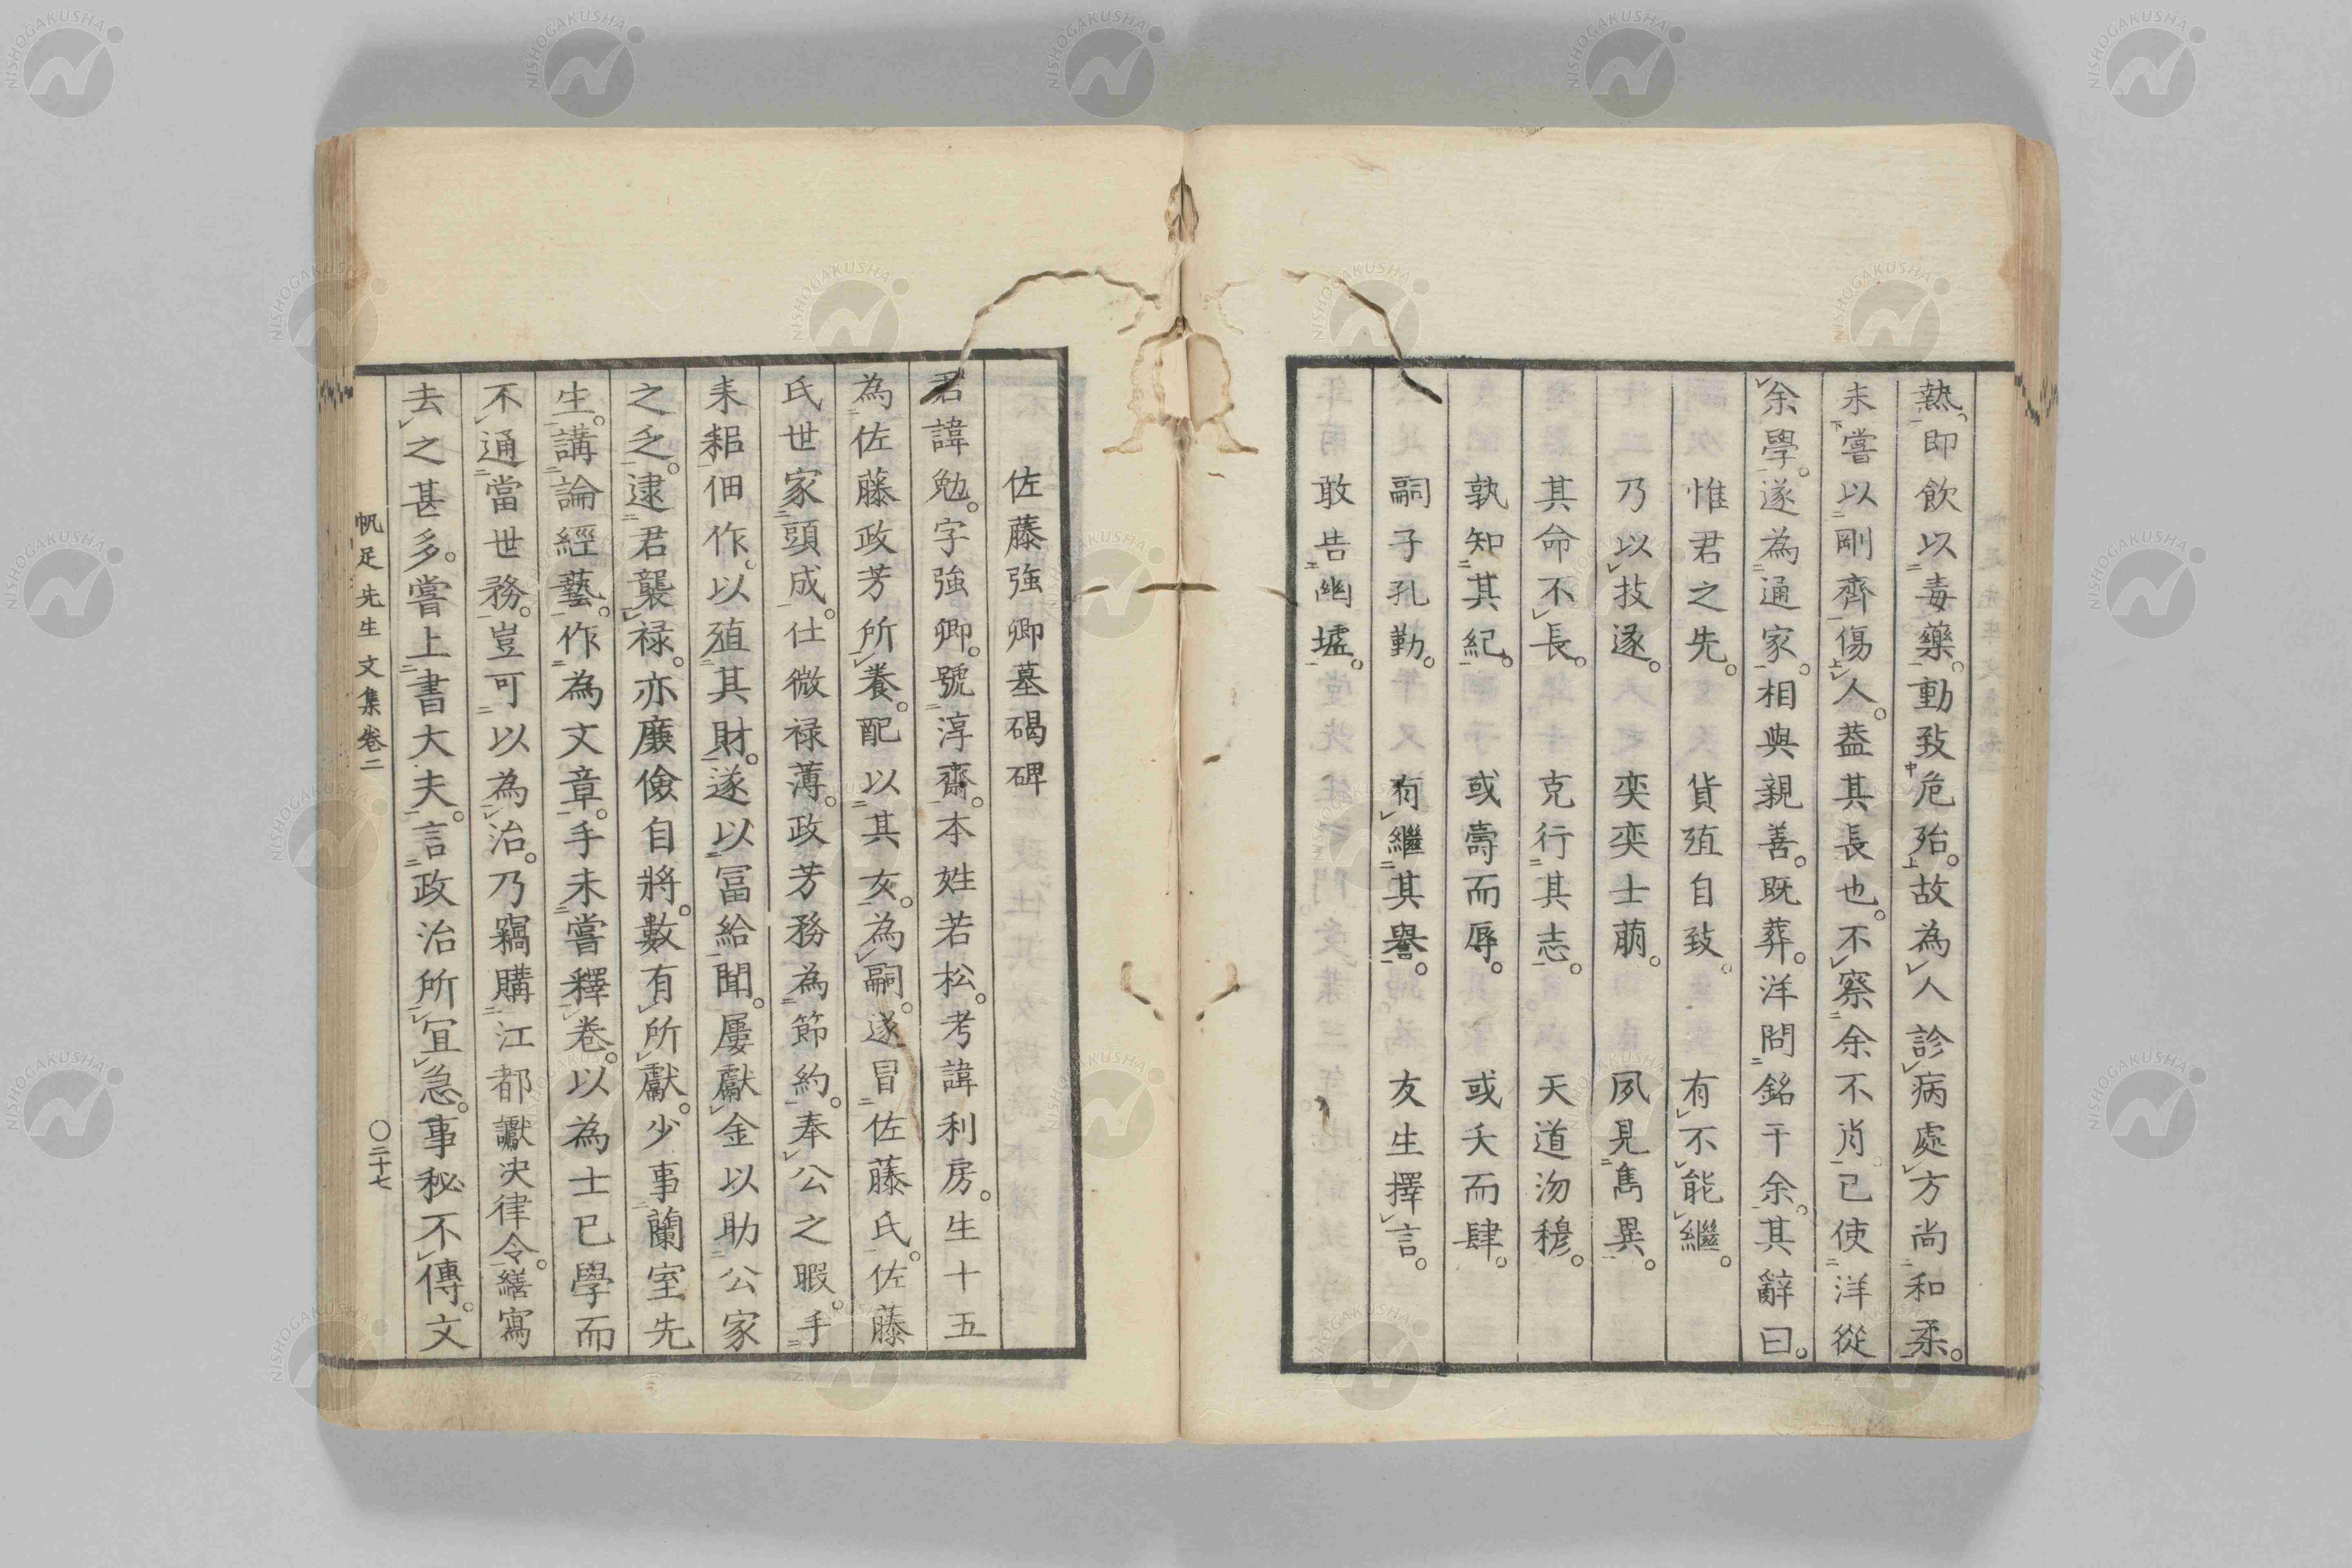 熱即飲以毒藥。動致危殆。故為人診病處方尚和柔。
未嘗以剛齊傷人。葢其長也。不察余不肖已使洋從
余學。遂為通家。相與親善。既葬。洋問銘于余。其辭曰。
惟君之先。貨殖自致。有不能繼。
乃以技遂。奕奕士萠。夙見雋異。
其命不長。克行其志。天道沕穆。
孰知其紀。或壽而辱。或夭而肆。
嗣子孔勤。有繼其譽。友生擇言。
敢告幽墟。
佐藤強卿墓碣碑
君諱勉。字強卿。號淳齋。本姓若松。考諱利房。生十五
為佐藤政芳所養。配以其女。為嗣。遂冒佐藤氏。佐藤
氏世家頭成。仕微禄薄。政芳務為節約。奉公之暇。手
耒耜佃作。以殖其財。遂以冨給聞。屢獻金以助公家
之乏。逮君襲禄。亦廉儉自將。數有所獻。少事蘭室先
生。講論經藝。作為文章。手未嘗釋卷。以為士已學而
不通當世務。豈可以為治。乃竊購江都讞决律令。繕寫
去之甚多。嘗上書大夫。言政治所宜急。事秘不傳。文
帆足先生文集卷二 〇二十七
NISHOGAKUSHA